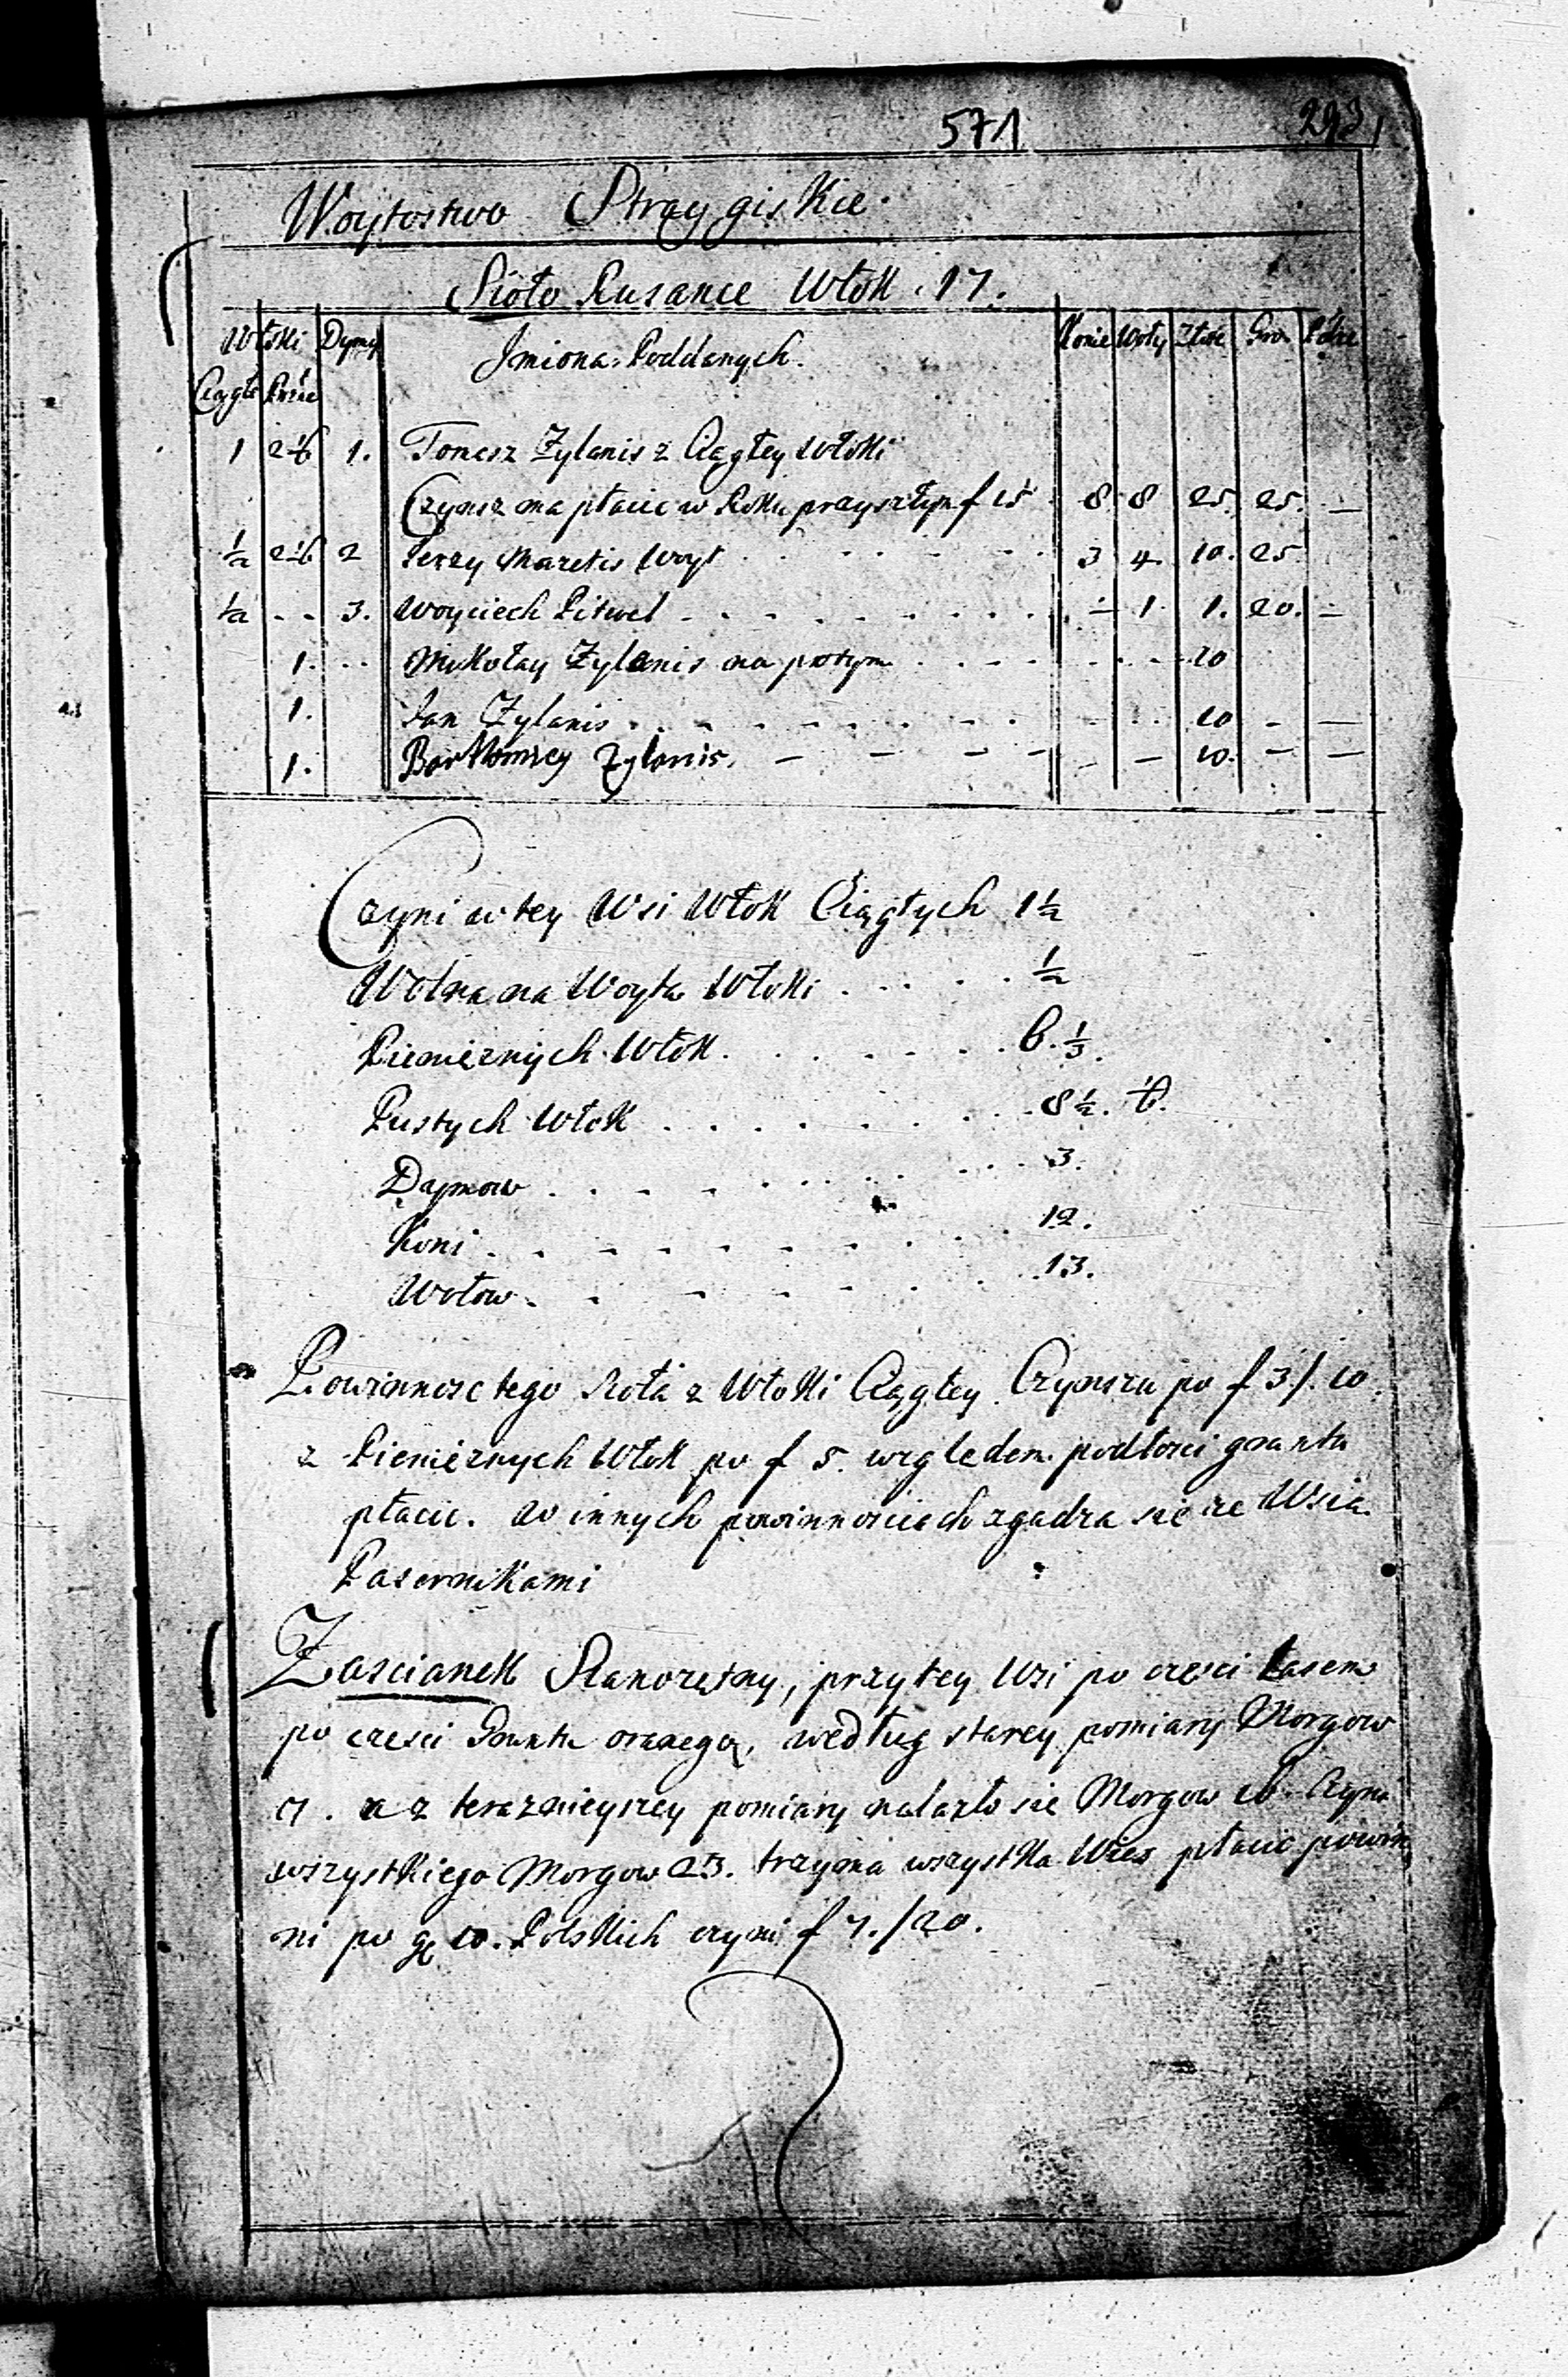 571 293
Woytostwo Strzygiskie.
Sioło Rusance Włok. 17.
Włoki Dymy Jmiona Poddanych. Konie Woły Złote Gro.
Ciągłe Prżne
1 2 1/6 1. Tomasz Zylanis z Ciągłey Włoki
Czynsz ma płacic w Roku przyszłym f 15 8. 8 25. 25. —
1/2 2 1/6 2 Jerzy Maretis Woyt 3 4. 10. 25
1/2 - - 3. Woyciech Pitwel - 1. 1. 20. -
1. .. Mikołay Zylanis na prożym 10
1. Jan Zylanis 10 - —
1. Bartłomiey Zylanis. - — 10. — —
Czyni w tey Wsi Włok Ciągłych 1 1/2
Wolna na Woyta Włoki 1/2
Pienięznych Włok 6. 1/3.
Pustych Włok 8 1/2. 1/6.
Dymow 3.
Koni 12.
Wołow 13.
Powinnosc tego Sioła z Włoki Ciągłey Czynszu po f 3/. 10.
z Pienięznych Włok po f 5. względem podłosci gruntu
płacic. W innych powinnosciach zgadza się ze Wsią
Pasernikami
Zascianek Stanorezny, przy tey Wsi po częsci Łasem
po częsci Gruntu oranego, według starey pomiary Morgow
7. a z terazmieyszey pomiary nalazło się Morgow 16. Czyni
wszystkiego Morgow 23. trzyma wszystka Wies płacic powin
ni po g 10. Polskich czyni f 7./20.